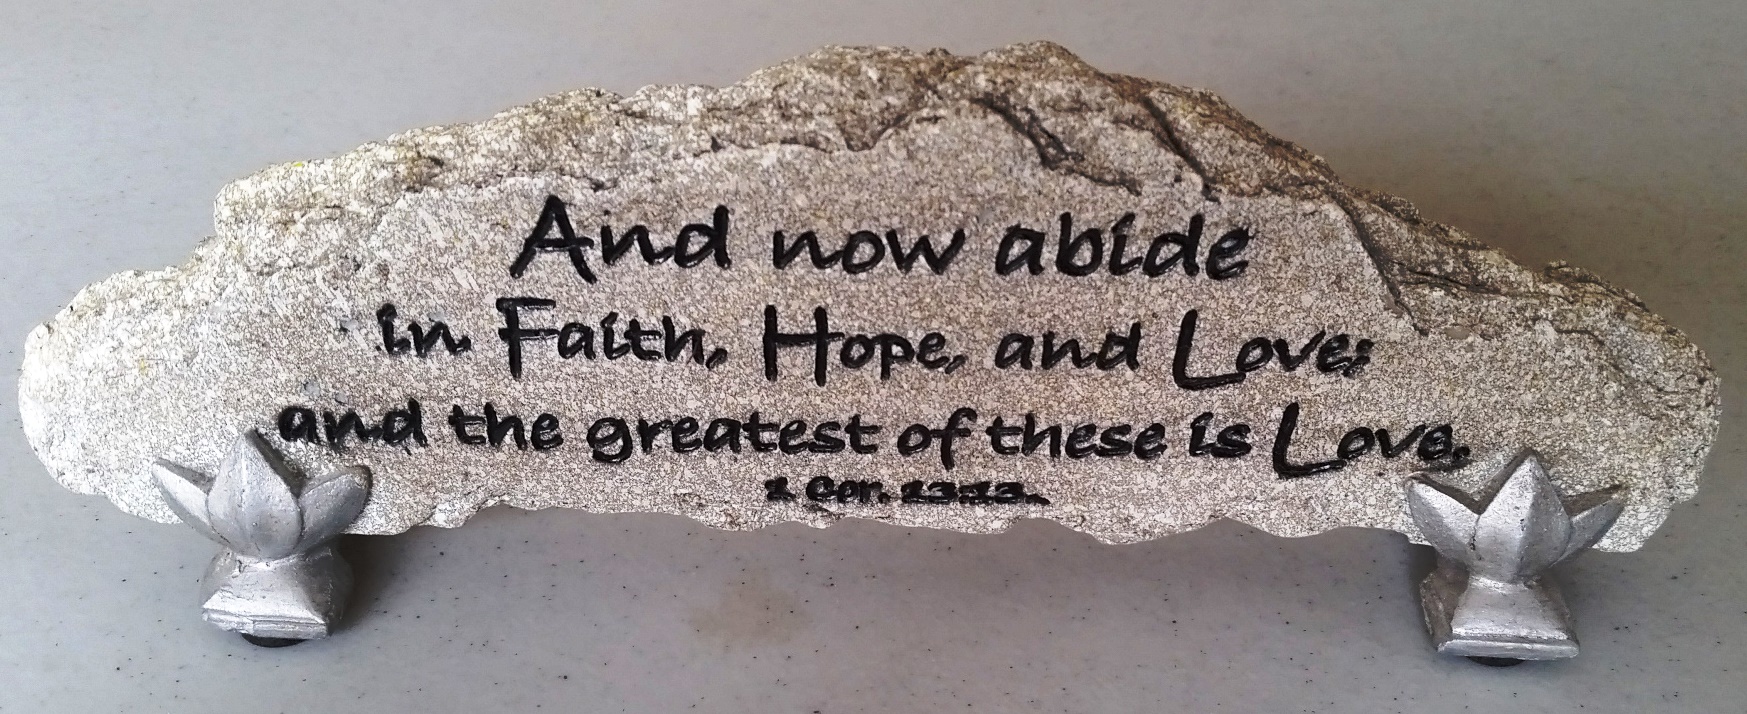 And now abide
in Faith, Hope, and Love;
and the greatest of these is Love.
1 Cor. 13:13